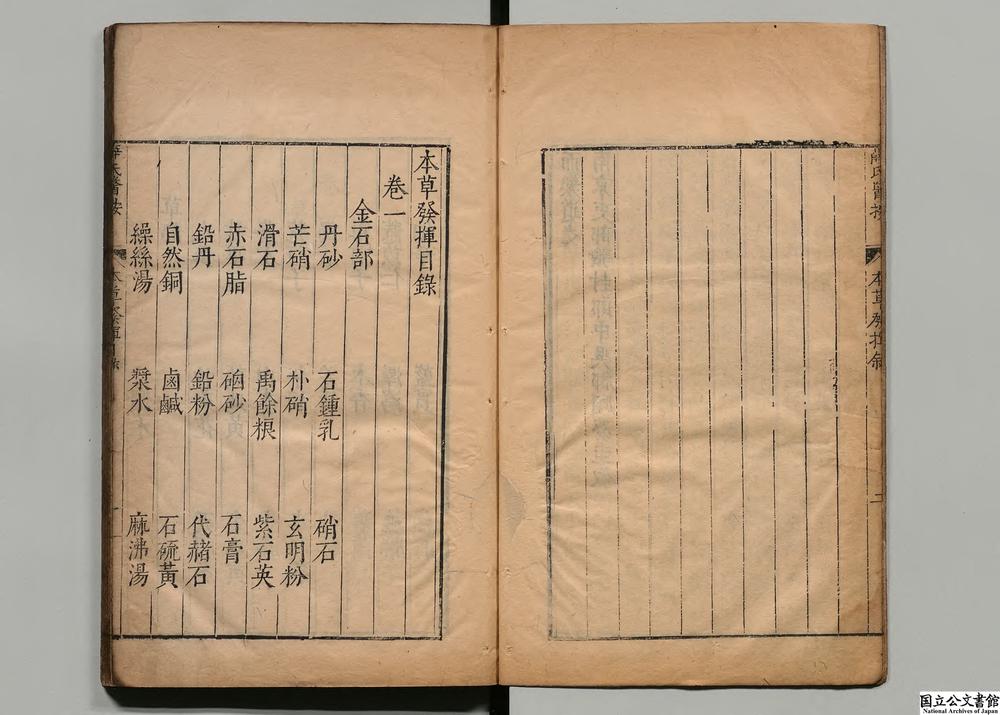 薛氏醫按
本草發揮敘
二
本草發揮目錄
卷一
金石部
丹砂 石鍾乳 硝石
芒硝 朴硝 玄明粉
滑石 禹餘粮 紫石英
赤石脂 硇砂 石膏
鉛丹 鉛粉 代赭石
自然銅 鹵鹹 石硫黃
繰絲湯 漿水 麻沸湯
薛氏醫按
本草發揮目錄
一
国立公文書館
National Archives of Japan